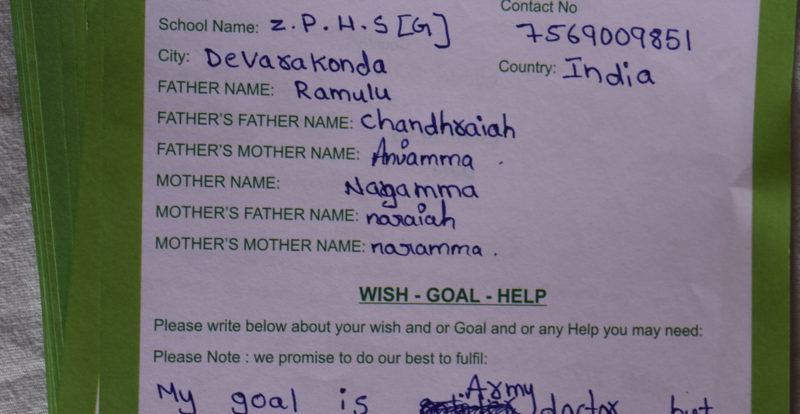 Contact No
School Name: Z.P.H.S [G]
7569009851
City: Devarakonda
Country: India
FATHER NAME: Ramulu
FATHER'S FATHER NAME: Chandhraiah
FATHER'S MOTHER NAME: Anjamma .
MOTHER NAME: Nagamma
MOTHER'S FATHER NAME: naraiah
MOTHER'S MOTHER NAME: naramma .
WISH - GOAL - HELP
Please write below about your wish and or Goal and or any Help you may need:
Please Note : we promise to do our best to fulfil:
My goal is Army doctor but